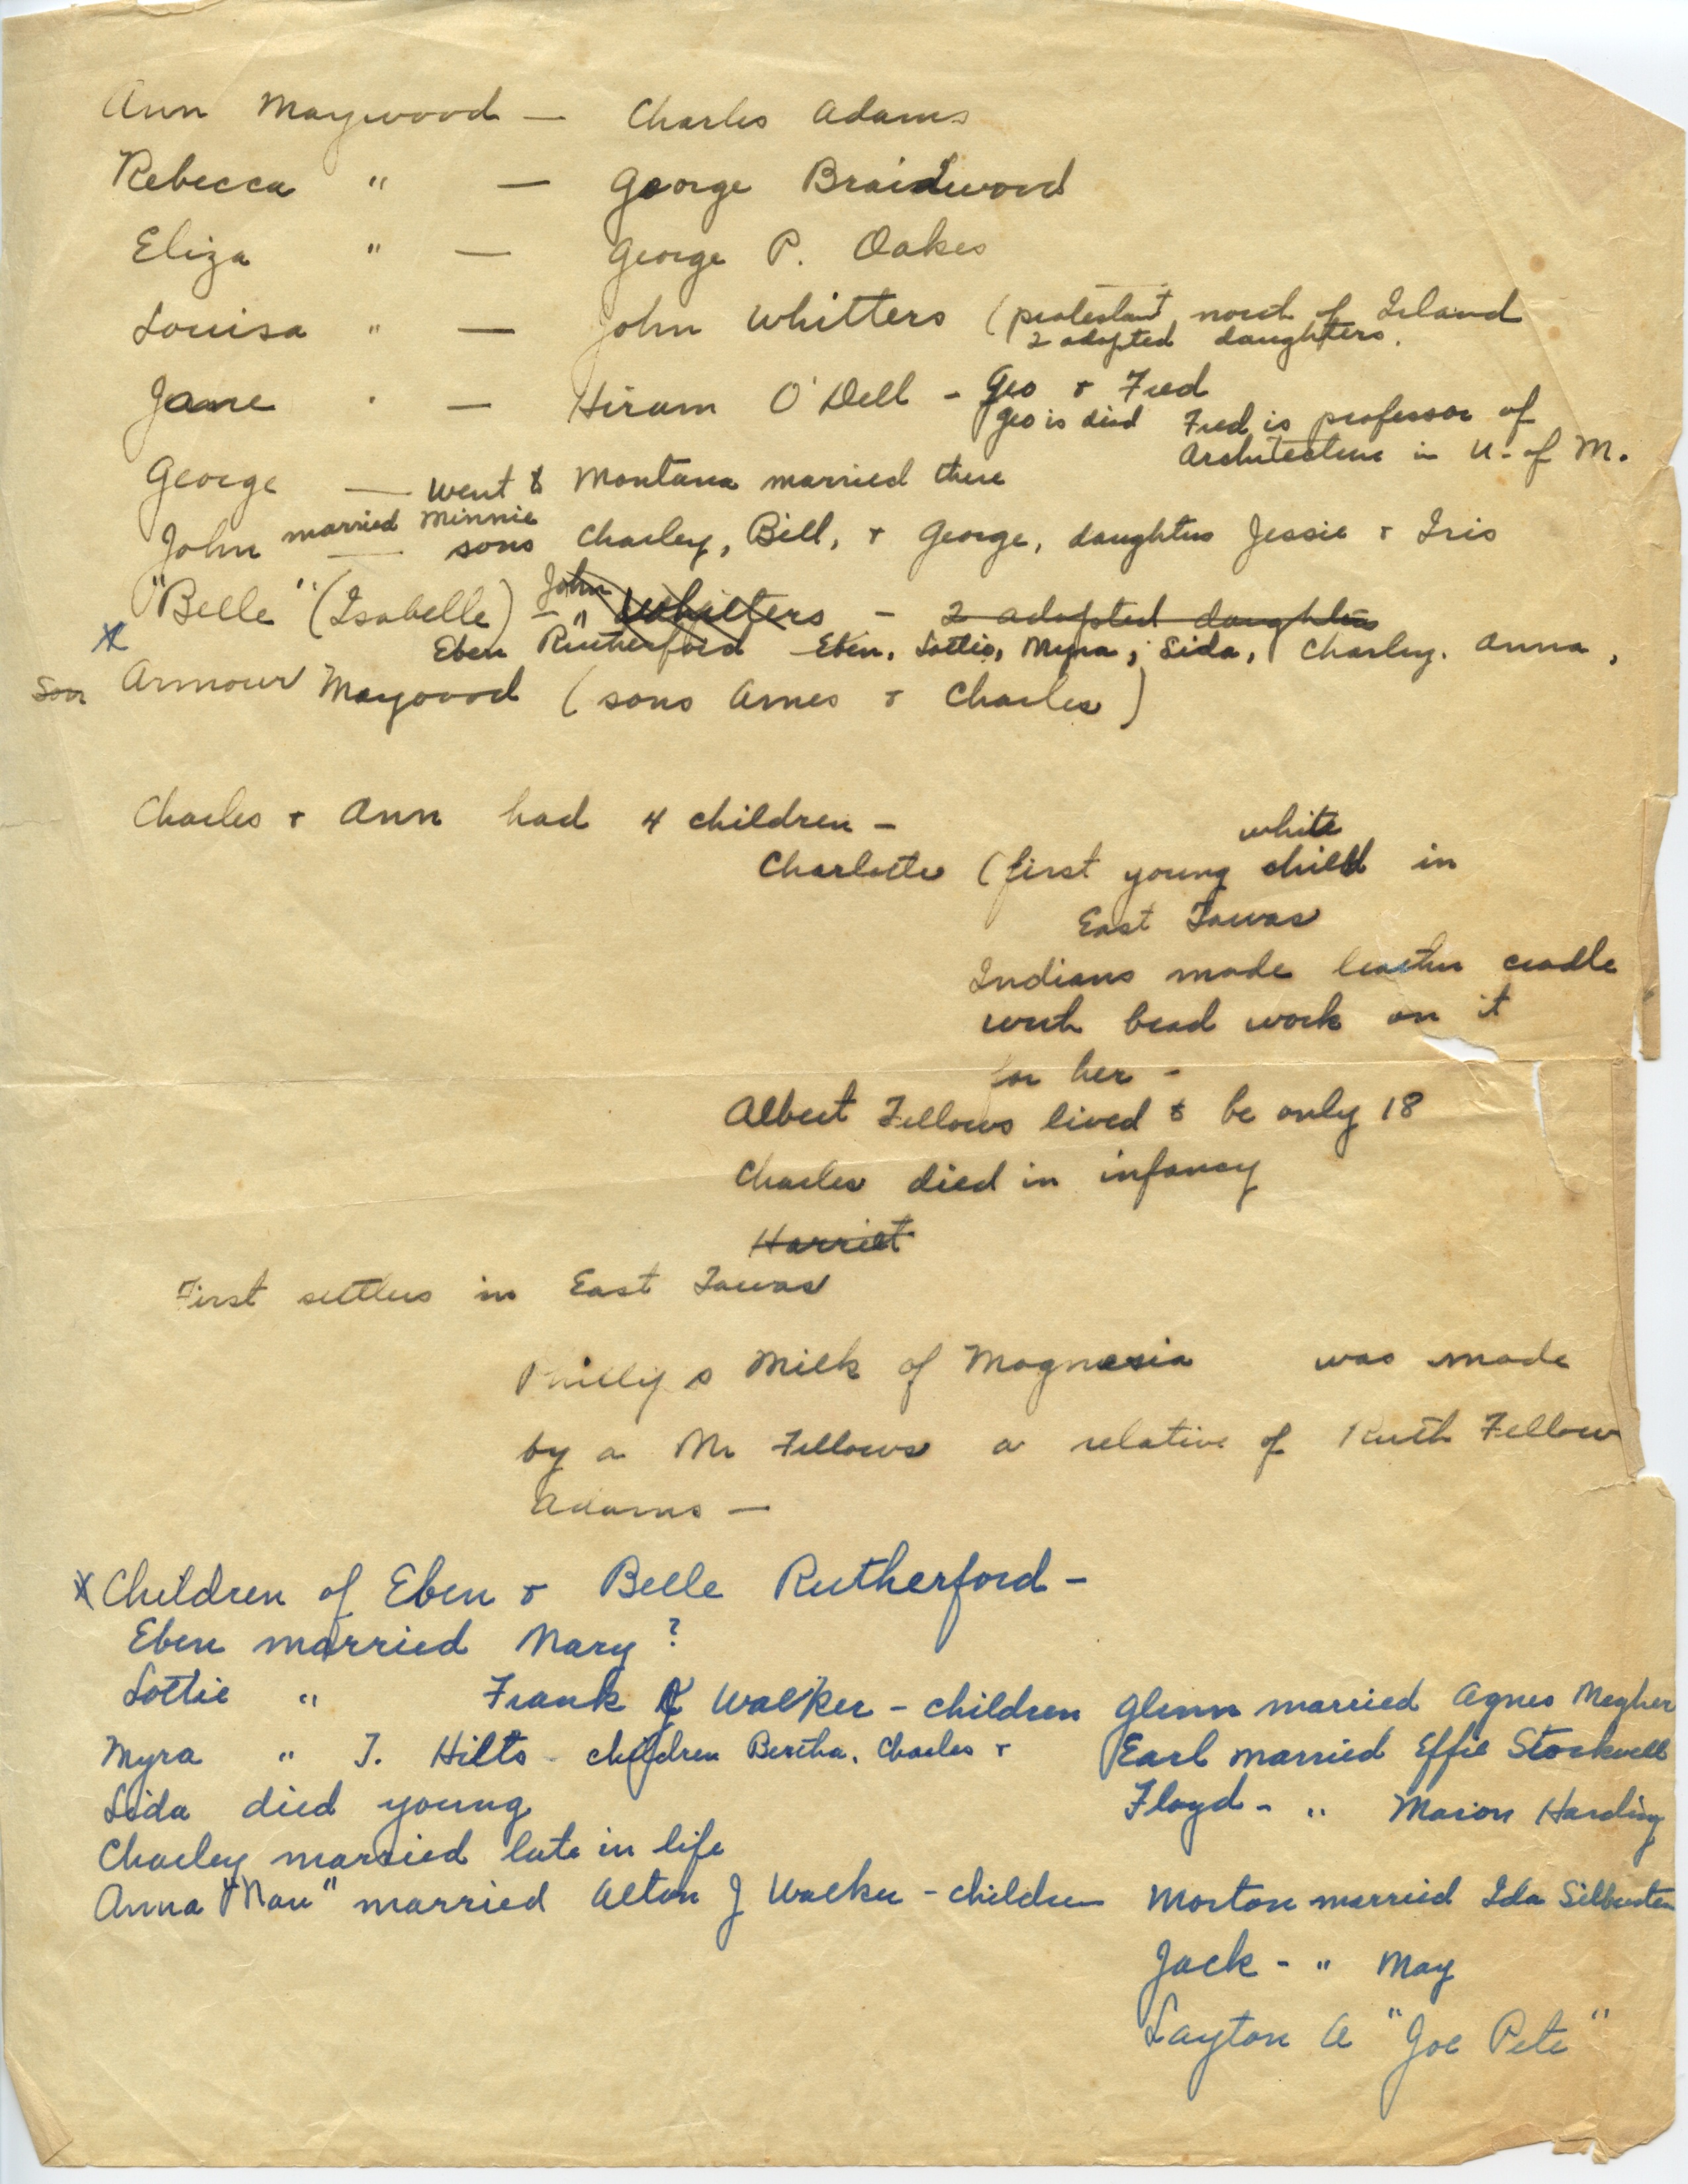 Ann Maywood — Charles Adams
Rebecca " — George Braidwood
Eliza " — George P. Oakes
Louisa " — John Whitters (protestant north of Ireland
2 adopted daughters.
Jane " — Hiram O'Dell - Geo & Fred
Geo is died Fred is professor of
Architecture in U. of M.
George — went to Montana married there
married Minnie
John — sons Charley, Bill, & George, daughters Jessie & Iris
John
"Belle" (Isabelle) - " Whitters - 2 adopted daughters
x Eben Rutherford Eben, Lottie, Myra, Lida, Charley, Anna,
Son Armour Maywood (sons Ames & Charles)
Charles & Ann had 4 children -
white
Charlotte (first young child in
East Tawas
Indians made leather cradle
with bead work on it
for her -
Albert Fellows lived to be only 18
Charles died in infancy
Harriet
First settlers in East Tawas
Phillips Milk of Magnesia was made
by a Mr Fellows a relative of Ruth Fellow
Adams —
x Children of Eben & Belle Rutherford -
Eben married Mary ?
Lottie " Frank Walker - children Glenn married Agnes Megher
Myra " J. Hilts - children Bertha, Charles & Earl married Effie Stockwell
Lida died young Floyd - " Marion Harding
Charley married late in life
Anna "Nan" married Alton J Walker - children Morton married Ida Silbersten
Jack - " May
Layton A "Joe Pete"